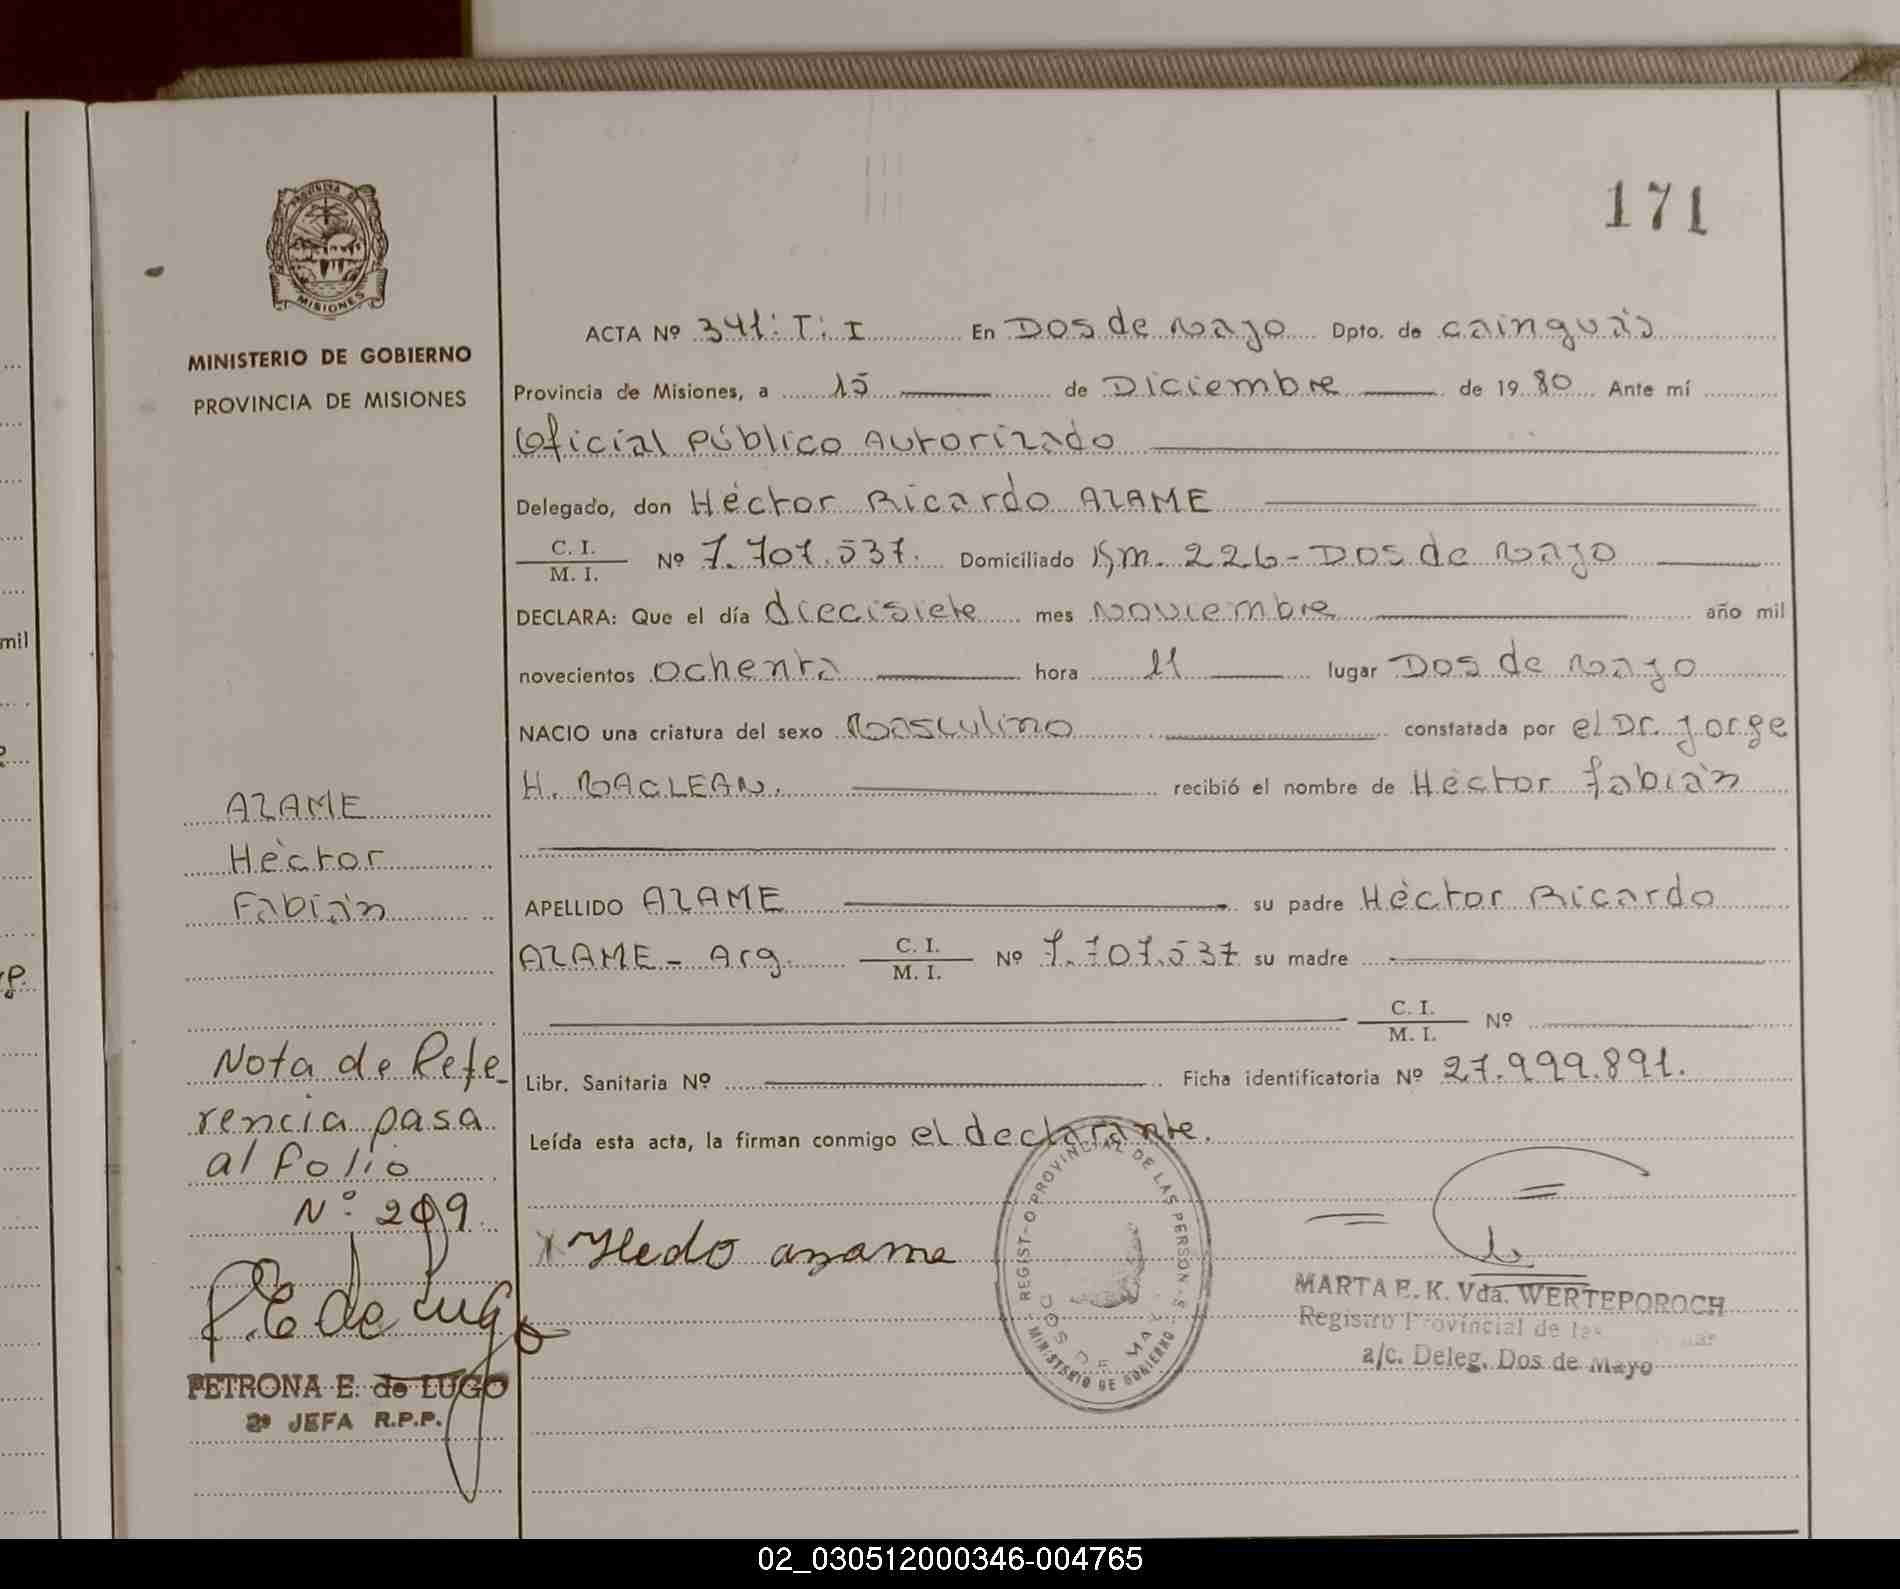 171
PROVINCIA DE
MISIONES
MINISTERIO DE GOBIERNO
PROVINCIA DE MISIONES
ACTA Nº 341: T: I En Dos de Mayo Dpto. de cainguás
Provincia de Misiones, a 15 de Diciembre de 1980 Ante mí
Oficial Público Autorizado
Delegado, don Héctor Ricardo AZAME
C. I.
M. I. Nº 7.707.537. Domiciliado Km. 226 - Dos de Mayo
DECLARA: Que el día diecisiete mes Noviembre año mil
novecientos ochenta hora 11 lugar Dos de Mayo
NACIO una criatura del sexo Masculino constatada por el Dr. Jorge
H. MACLEAN. recibió el nombre de Héctor Fabián
APELLIDO AZAME su padre Héctor Ricardo
AZAME - Arg. C. I.
M. I. Nº 7.707.537 su madre
C. I.
M. I. Nº
Libr. Sanitaria Nº Ficha identificatoria Nº 27.999.891.
Leída esta acta, la firman conmigo el declarante.
AZAME
Héctor
Fabián
Nota de Refe-
rencia pasa
al folio
Nº 209
P.E de Lugo
PETRONA E. de LUGO
2ª JEFA R.P.P.
azame
REGISTRO PROVINCIAL DE LAS PERSONAS
DOS DE MAYO
MINISTERIO DE GOBIERNO
MARTA E. K. Vda. WERTEPOROCH
Registro Provincial de las
a/c. Deleg. Dos de Mayo
mil
02_030512000346-004765